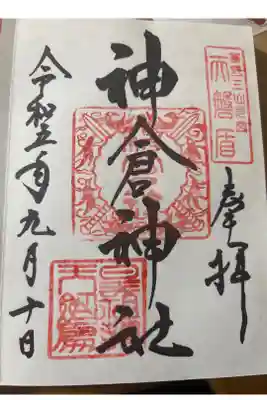 天磐盾
奉拝
神倉神社
令和五年九月十日